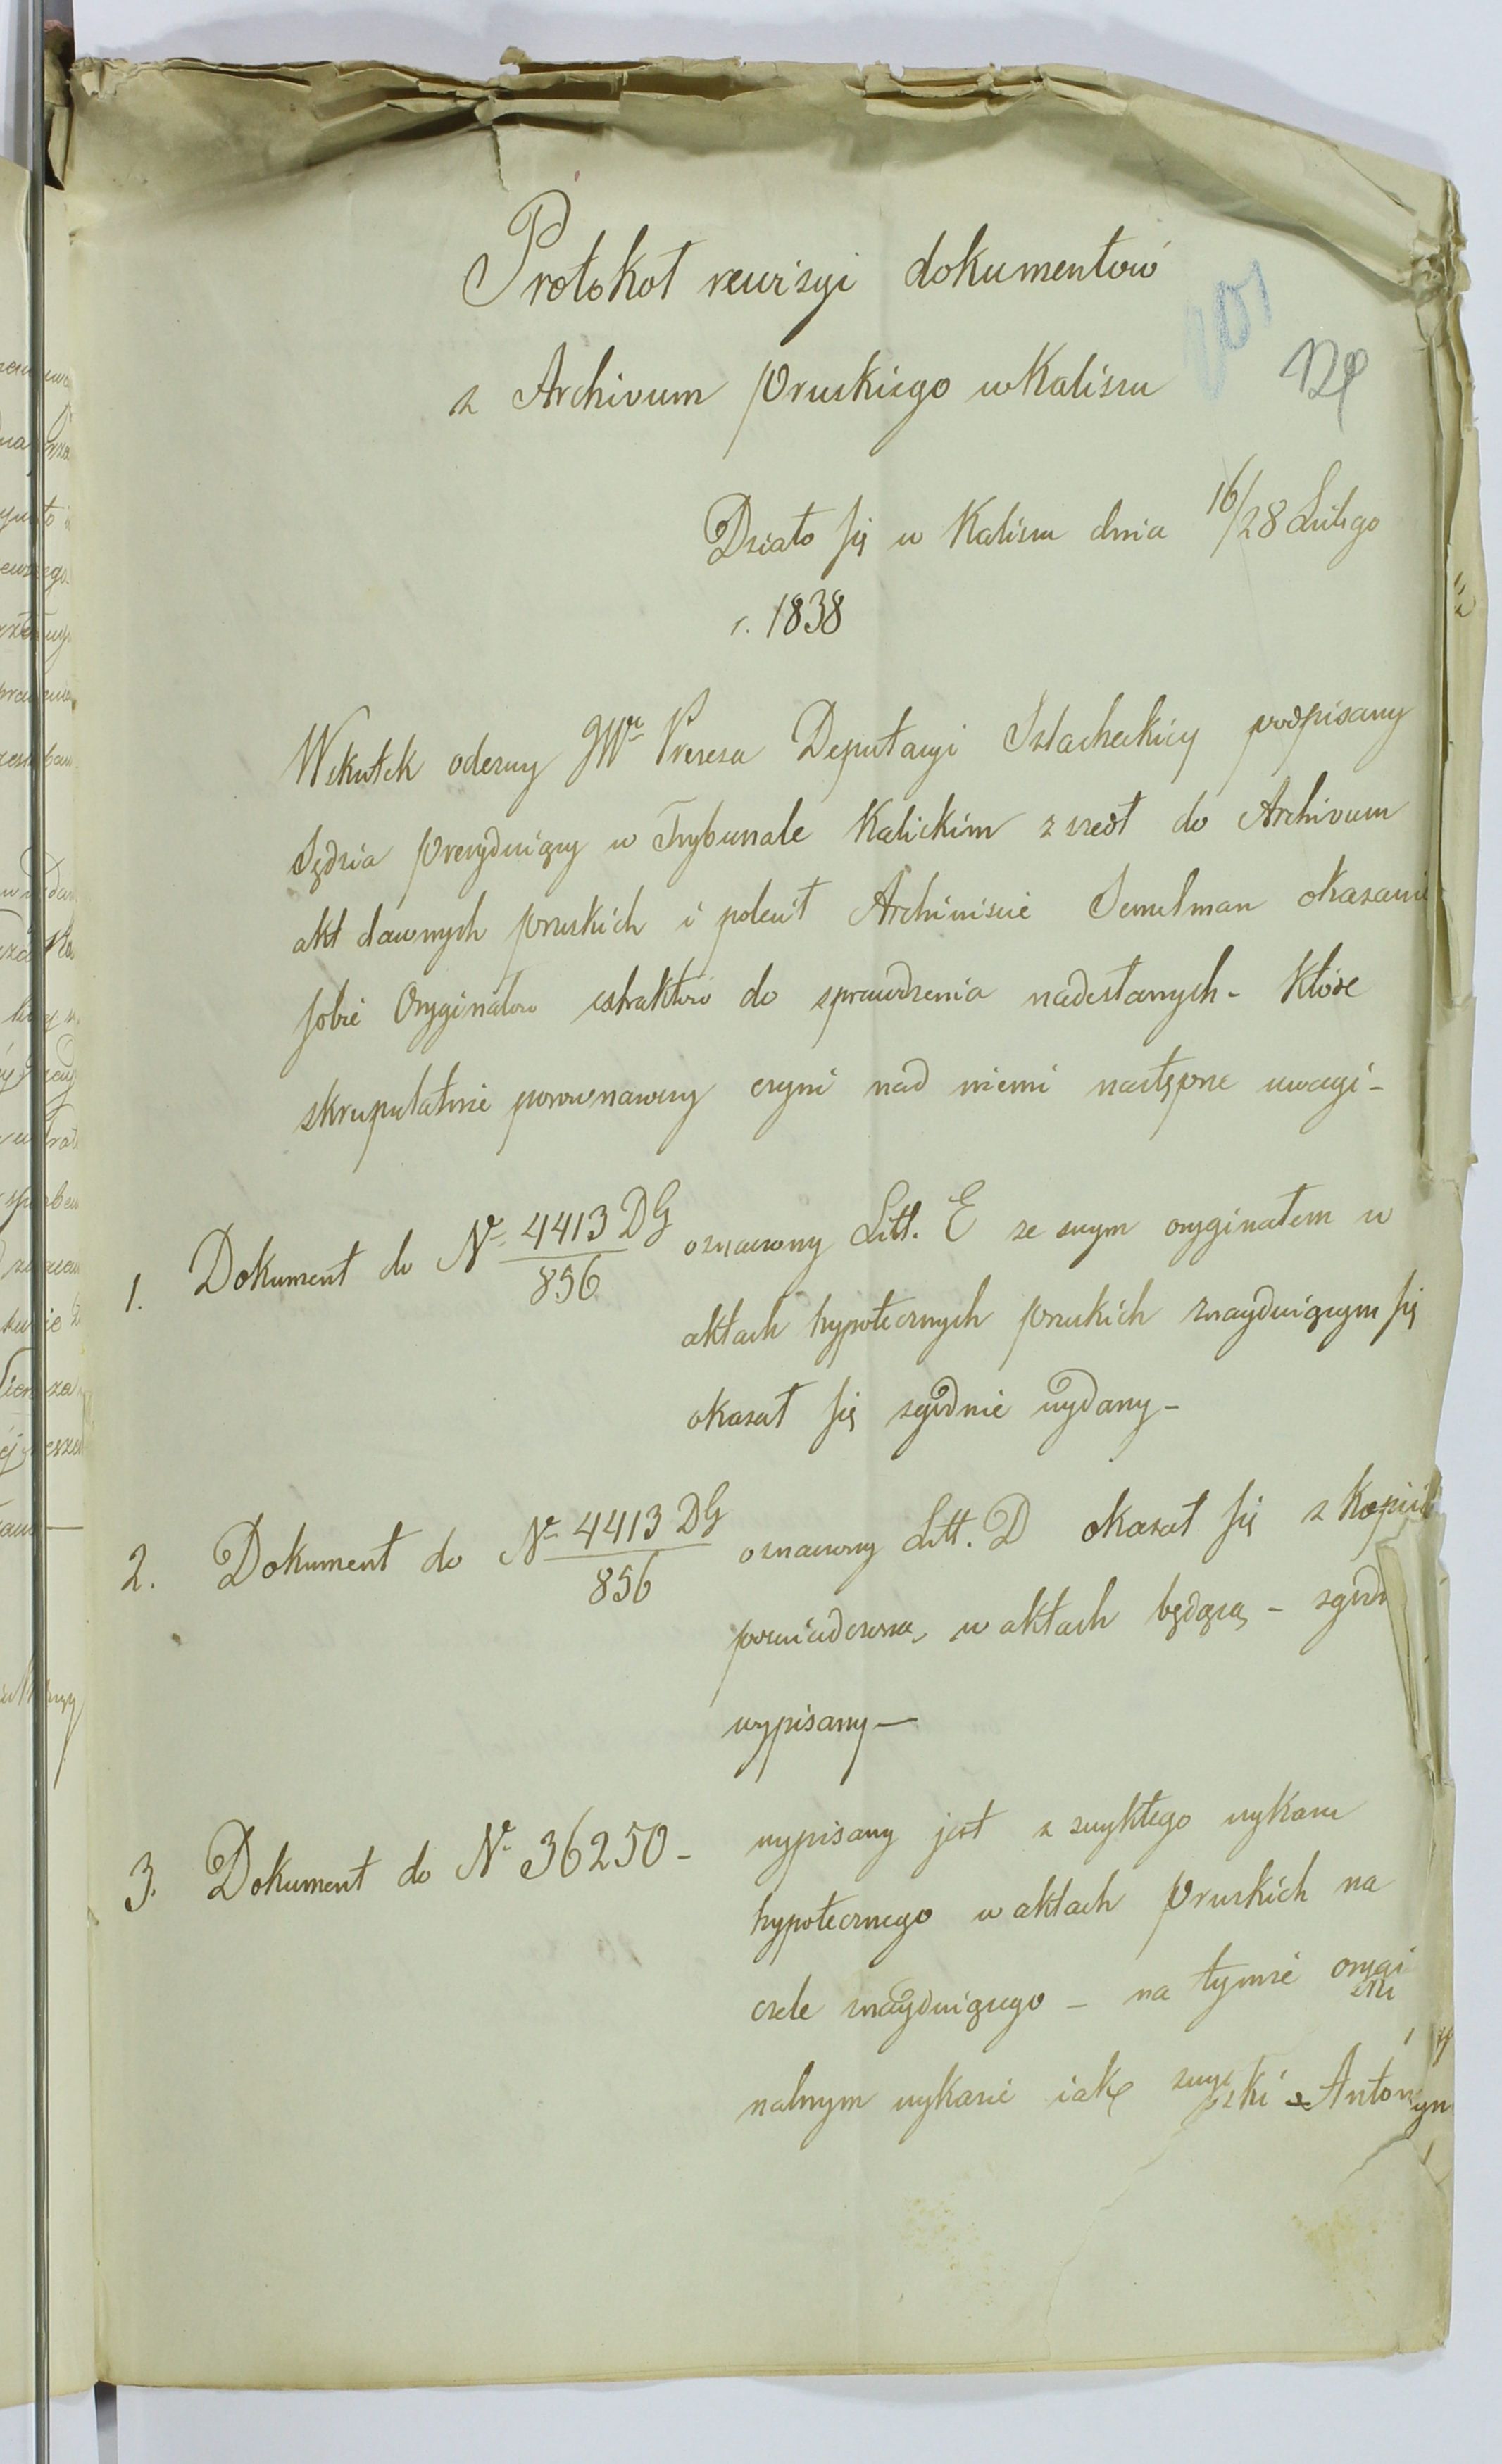 Protokoł rewizyi dokumentów
z Archivum Pruskiego w Kaliszu
Działo się w Kaliszu dnia 16/28 Lutego
r. 1838
Wskutek odezwy JWo Prezesa Deputacyi Szlacheckiey podpisany
Sędzia Prezyduiący w Trybunale Kaliskim zszedł do Archivum
akt dawnych pruskich i polecił Archiwiscie Semelman okazanie
sobie Oryginałow extraktów do sprawdzenia nadesłanych - które
skrupulatnie porównawszy czyni nad niemi następne uwagi -
1. Dokument do N. 4413 DG / 856 oznaczony Litt. E ze swym oryginałem w
aktach hypotecznych pruskich znayduiącym się
okazał się zgodnie wydany -
2. Dokument do N. 4413 DG / 856 oznaczony Litt. D okazał się z kopiią
poswiadczoną, w aktach będącą, - zgodn
wypisany —
3. Dokument do N. 36250 - wypisany jest z zwykłego wykazu
hypotecznego w aktach Pruskich na
czele znayduiącego - na tymże orygi
nalnym wykazie iak Antonyn